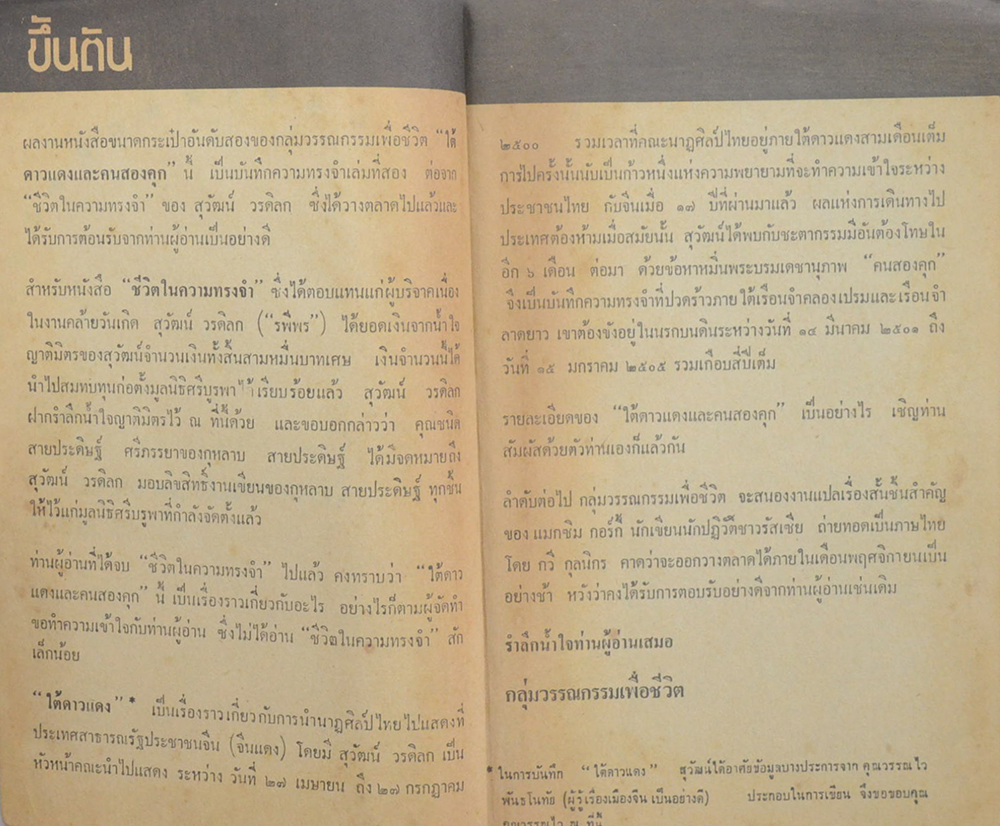 ขึ้นต้น
ผลงานหนังสือขนาดกระเป๋าอันดับสองของกลุ่มวรรณกรรมเพื่อชีวิต “ใต้
ดาวแดงและคนสองคุก” นี้ เป็นบันทึกความทรงจำเล่มที่สอง ต่อจาก
“ชีวิตในความทรงจำ” ของ สุวัฒน์ วรดิลก ซึ่งได้วางตลาดไปแล้วและ
ได้รับการต้อนรับจากท่านผู้อ่านเป็นอย่างดี
สำหรับหนังสือ “ชีวิตในความทรงจำ” ซึ่งได้ตอบแทนแก่ผู้บริจาคเนื่อง
ในงานคล้ายวันเกิด สุวัฒน์ วรดิลก (“รพีพร”) ได้ยอดเงินจากน้ำใจ
ญาติมิตรของสุวัฒน์จำนวนเงินทั้งสิ้นสามหมื่นบาทเศษ เงินจำนวนนี้ได้
นำไปสมทบทุนก่อตั้งมูลนิธิศรีบูรพาไว้เรียบร้อยแล้ว สุวัฒน์ วรดิลก
ฝากรำลึกน้ำใจญาติมิตรไว้ ณ ที่นี้ด้วย และขอบอกกล่าวว่า คุณชนิด
สายประดิษฐ์ ศรีภรรยาของกุหลาบ สายประดิษฐ์ ได้มีจดหมายถึง
สุวัฒน์ วรดิลก มอบลิขสิทธิ์งานเขียนของกุหลาบ สายประดิษฐ์ ทุกชิ้น
ให้ไว้แก่มูลนิธิศรีบรูพาที่กำลังจัดตั้งแล้ว
ท่านผู้อ่านที่ได้จบ “ชีวิตในความทรงจำ” ไปแล้ว คงทราบว่า “ใต้ดาว
แดงและคนสองคุก” นี้ เป็นเรื่องราวเกี่ยวกับอะไร อย่างไรก็ตามผู้จัดทำ
ขอทำความเข้าใจกับท่านผู้อ่าน ซึ่งไม่ได้อ่าน “ชีวิตในความทรงจำ” สัก
เล็กน้อย
“ใต้ดาวแดง” * เป็นเรื่องราวเกี่ยวกับการนำนาฏศิลป์ไทยไปแสดงที่
ประเทศสาธารณรัฐประชาชนจีน (จีนแดง) โดยมี สุวัฒน์ วรดิลก เป็น
หัวหน้าคณะนำไปแสดง ระหว่าง วันที่ ๒๗ เมษายน ถึง ๒๗ กรกฎาคม
๒๕๐๐ รวมเวลาที่คณะนาฏศิลป์ไทยอยู่ภายใต้ดาวแดงสามเดือนเต็ม
การไปครั้งนั้นนับเป็นก้าวหนึ่งแห่งความพยายามที่จะทำความเข้าใจระหว่าง
ประชาชนไทย กับจีนเมื่อ ๑๗ ปีที่ผ่านมาแล้ว ผลแห่งการเดินทางไป
ประเทศต้องห้ามเมื่อสมัยนั้น สุวัฒน์ได้พบกับชะตากรรมมีอันต้องโทษใน
อีก ๖ เดือน ต่อมา ด้วยข้อหาหมิ่นพระบรมเดชานุภาพ “คนสองคุก”
จึงเป็นบันทึกความทรงจำที่ปวดร้าวภายใต้เรือนจำคลองเปรมและเรือนจำ
ลาดยาว เขาต้องขังอยู่ในนรกบนดินระหว่างวันที่ ๑๔ มีนาคม ๒๕๐๑ ถึง
วันที่ ๑๕ มกราคม ๒๕๐๕ รวมเกือบสี่ปีเต็ม
รายละเอียดของ “ใต้ดาวแดงและคนสองคุก” เป็นอย่างไร เชิญท่าน
สัมผัสด้วยตัวท่านเองก็แล้วกัน
ลำดับต่อไป กลุ่มวรรณกรรมเพื่อชีวิต จะสนองงานแปลเรื่องสั้นชิ้นสำคัญ
ของ แมกซิม กอร์กี้ นักเขียนนักปฏิวัติชาวรัสเซีย ถ่ายทอดเป็นภาษาไทย
โดย กวี กุลนิกร คาดว่าจะออกวางตลาดได้ภายในเดือนพฤศจิกายนเป็น
อย่างช้า หวังว่าคงได้รับการตอบรับอย่างดีจากท่านผู้อ่านเช่นเดิม
รำลึกน้ำใจท่านผู้อ่านเสมอ
กลุ่มวรรณกรรมเพื่อชีวิต
* ในการบันทึก “ใต้ดาวแดง” สุวัฒน์ได้อาศัยข้อมูลบางประการจาก คุณวรรณไว
พันธโนทัย (ผู้รู้เรื่องเมืองจีน เป็นอย่างดี) ประกอบในการเขียน จึงขอขอบคุณ
คุณวรรณไว ณ ที่นี้